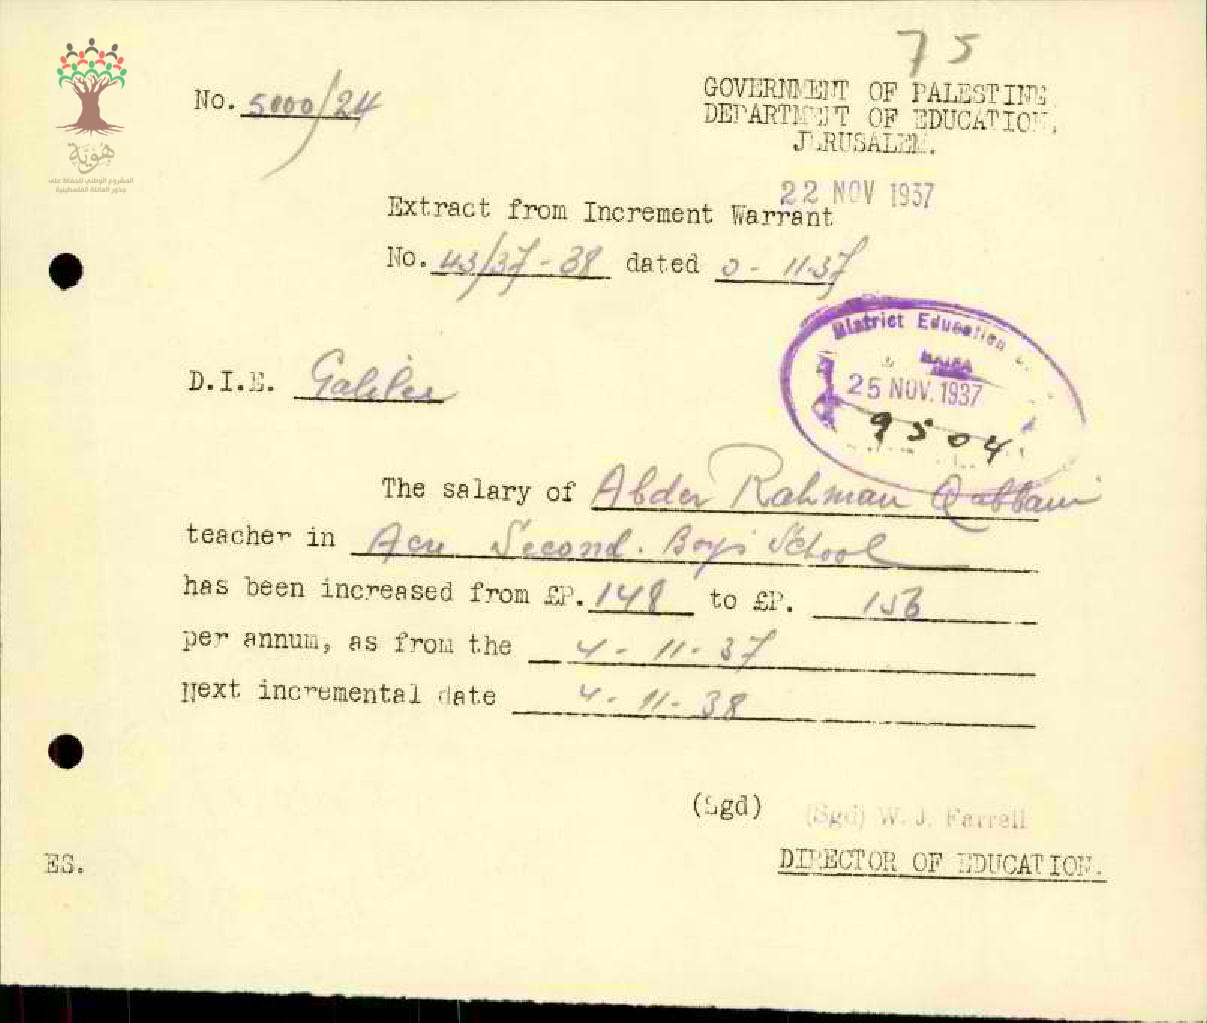 75
No. 5000/24
GOVERNMENT OF PALESTINE
DEPARTMENT OF EDUCATION,
JERUSALEM.
هوية
المشروع الوطني للحفاظ على
جذور العائلة الفلسطينية
22 NOV 1937
Extract from Increment Warrant
No. 43/37-38 dated 11-37
District Education
HAIFA
25 NOV. 1937
9504
D.I.E. Galilee
The salary of Abder Rahman Qabbani
teacher in Acre Second. Boys School
has been increased from £P. 148 to £P. 156
per annum, as from the 4-11-37
Next incremental date 4-11-38
(Sgd) (Sgd) W. J. Farrell
DIRECTOR OF EDUCATION.
ES.